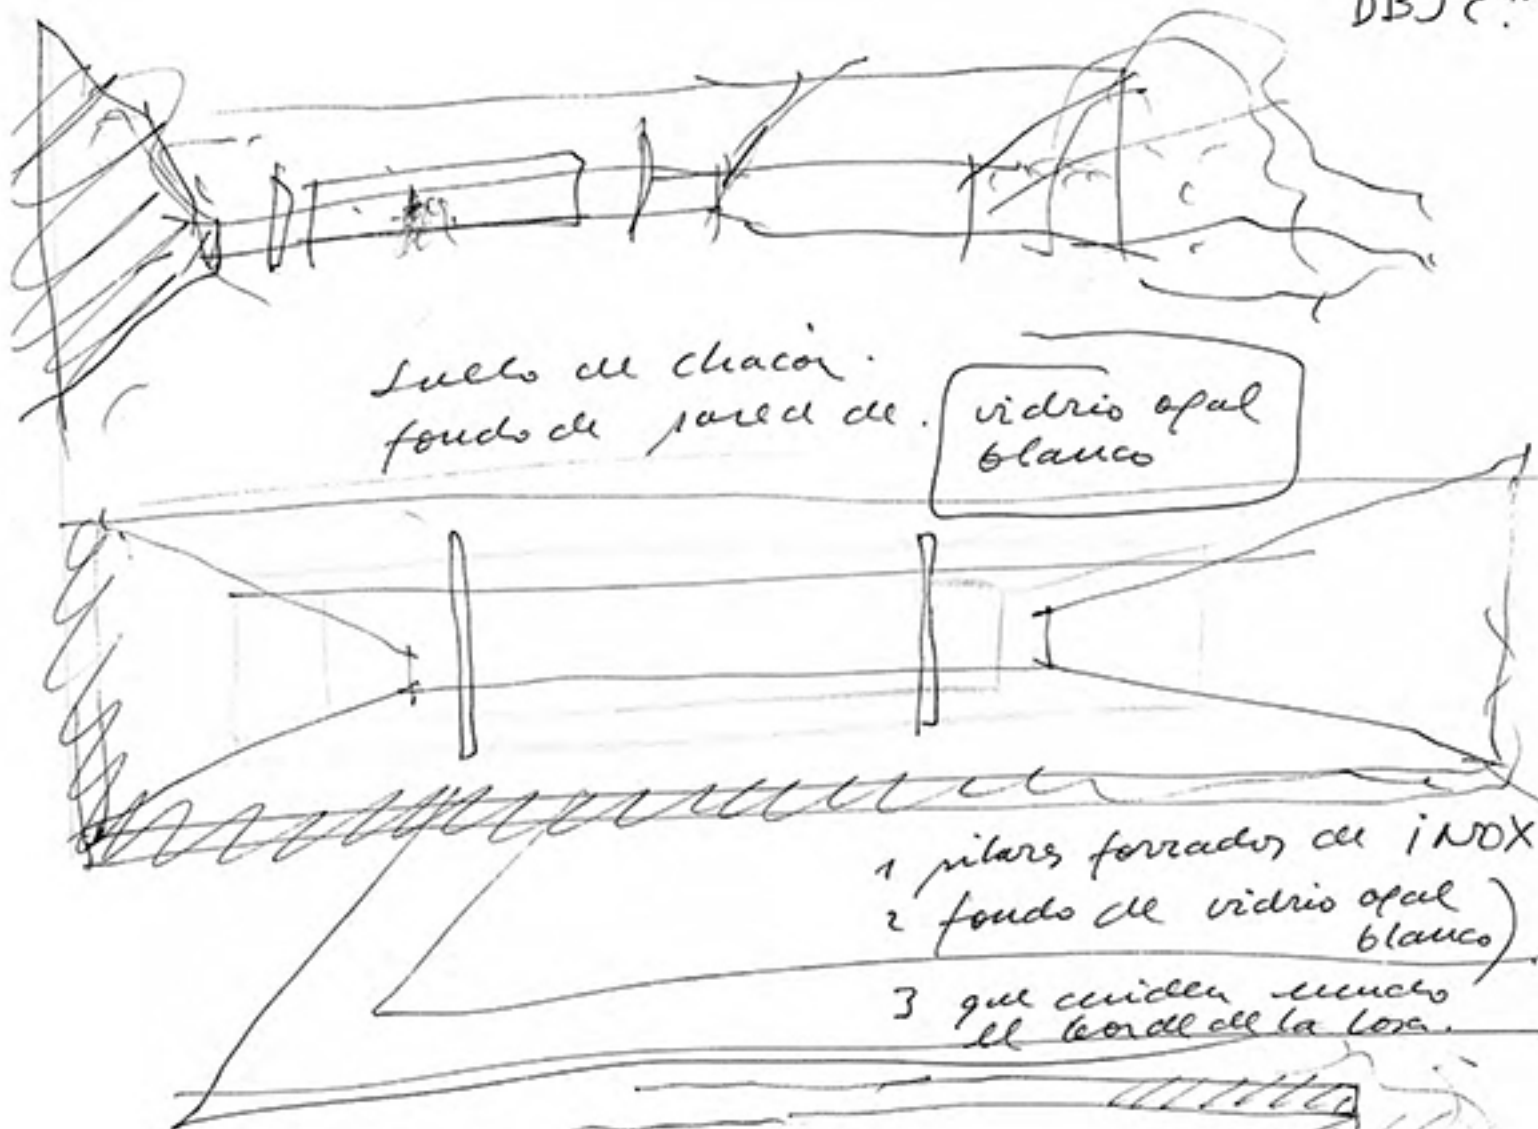 suelo de chacón.
fondo de pared de. vidrio opal
blanco
1 pilares forrados de iNOX
2 fondo de vidrio opal
blanco)
3 que cuiden mucho
el borde de la losa.